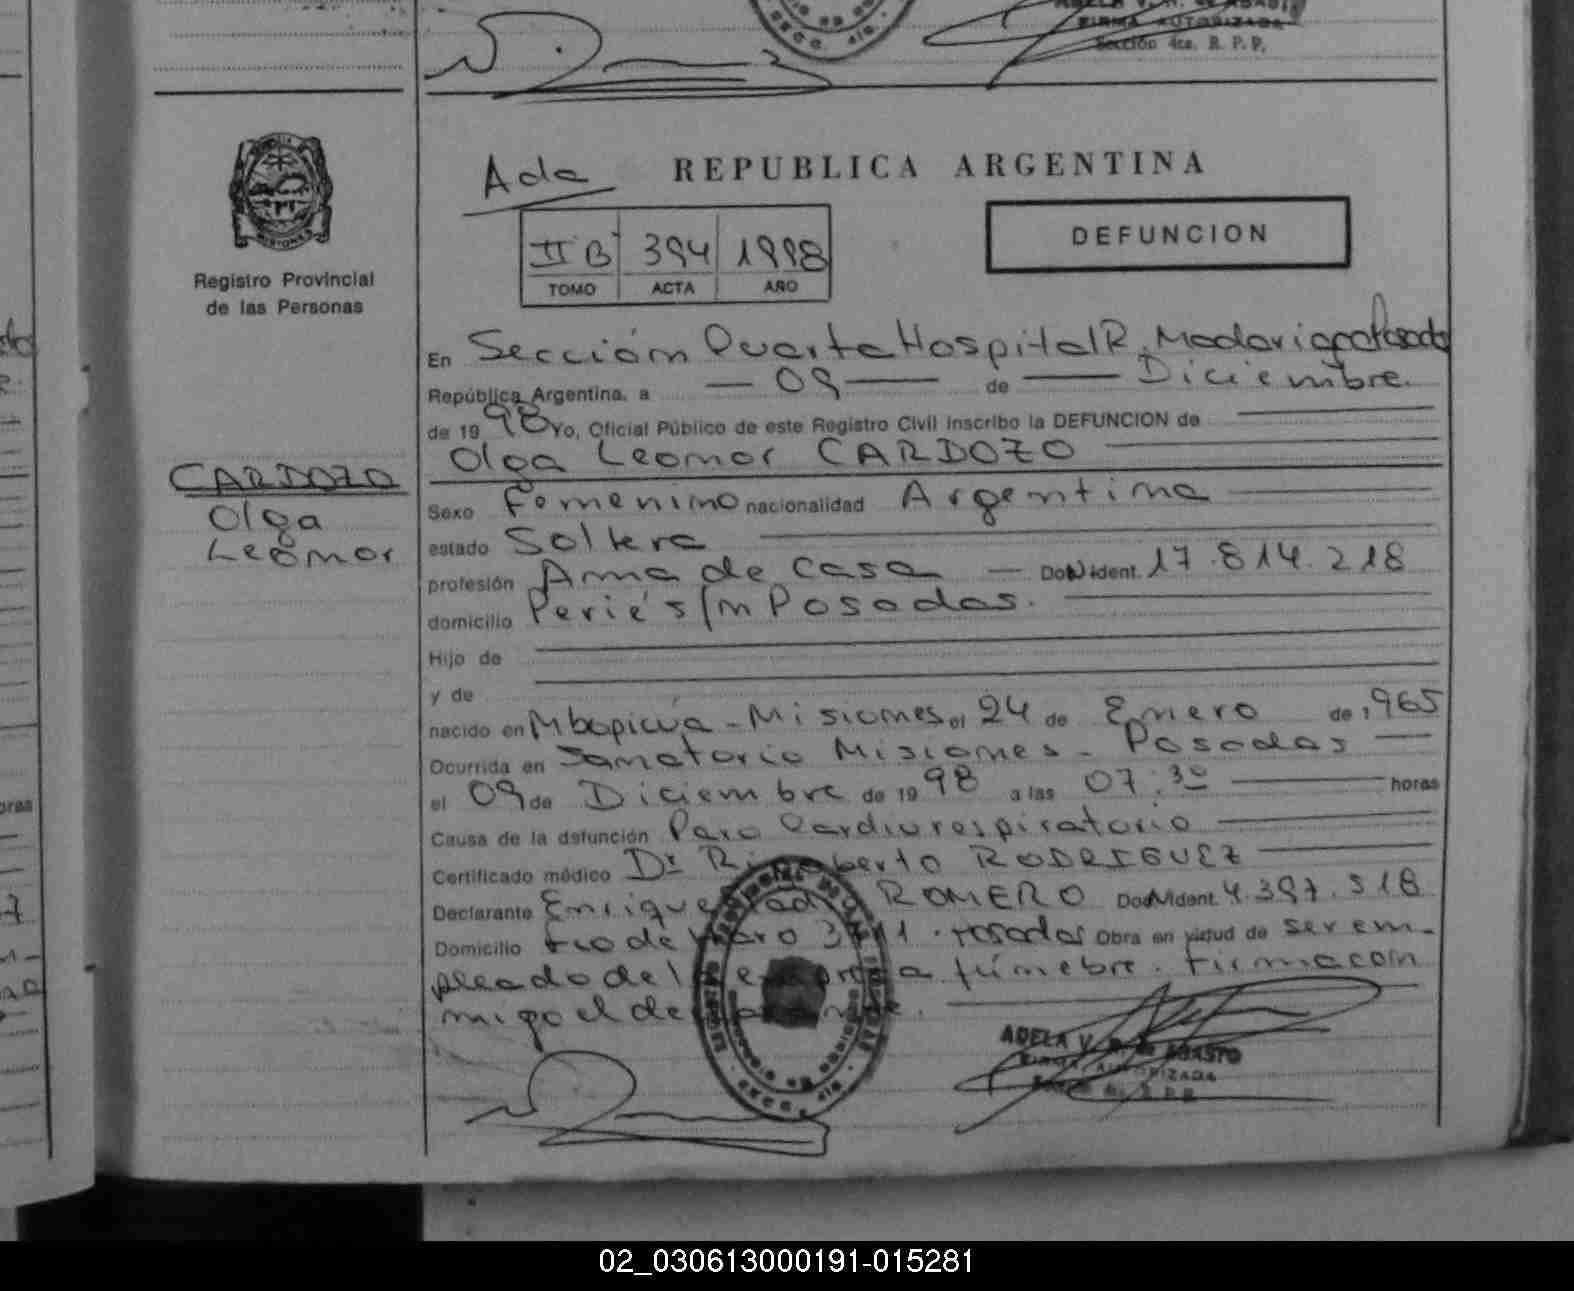 FIRMA AUTORIZADA
Sección 4ta. R. P. P.
Registro Provincial
de las Personas
CARDOZO
Olga
Leonor
Ada
REPUBLICA ARGENTINA
II B 394 1998
TOMO ACTA AÑO
DEFUNCION
En Sección Cuarta Hospital R. Madariaga Posadas
República Argentina, a — 09 — de — Diciembre.
de 19 98 Yo, Oficial Público de este Registro Civil inscribo la DEFUNCION de
Olga Leonor CARDOZO
Sexo Femenino nacionalidad Argentina
estado Soltera
profesión Ama de casa — Doc. Ident. 17.814.218
domicilio Perié s/n Posadas.
Hijo de
y de
nacido en Mbopicuá - Misiones, el 24 de Enero de 1965
Ocurrida en Sanatorio Misiones - Posadas
el 09 de Diciembre de 19 98 a las 07:30 horas
Causa de la defunción Paro Cardiorespiratorio
Certificado médico Dr Rigoberto RODRIGUEZ
Declarante Enrique ROMERO Doc. Ident. 4.397.518
Domicilio Fco de Haro Posadas Obra en virtud de ser em-
pleado de la empresa fúnebre. Firma con
migo el declarante.
ADELA V. R. de AGASTO
FIRMA AUTORIZADA
02_030613000191-015281